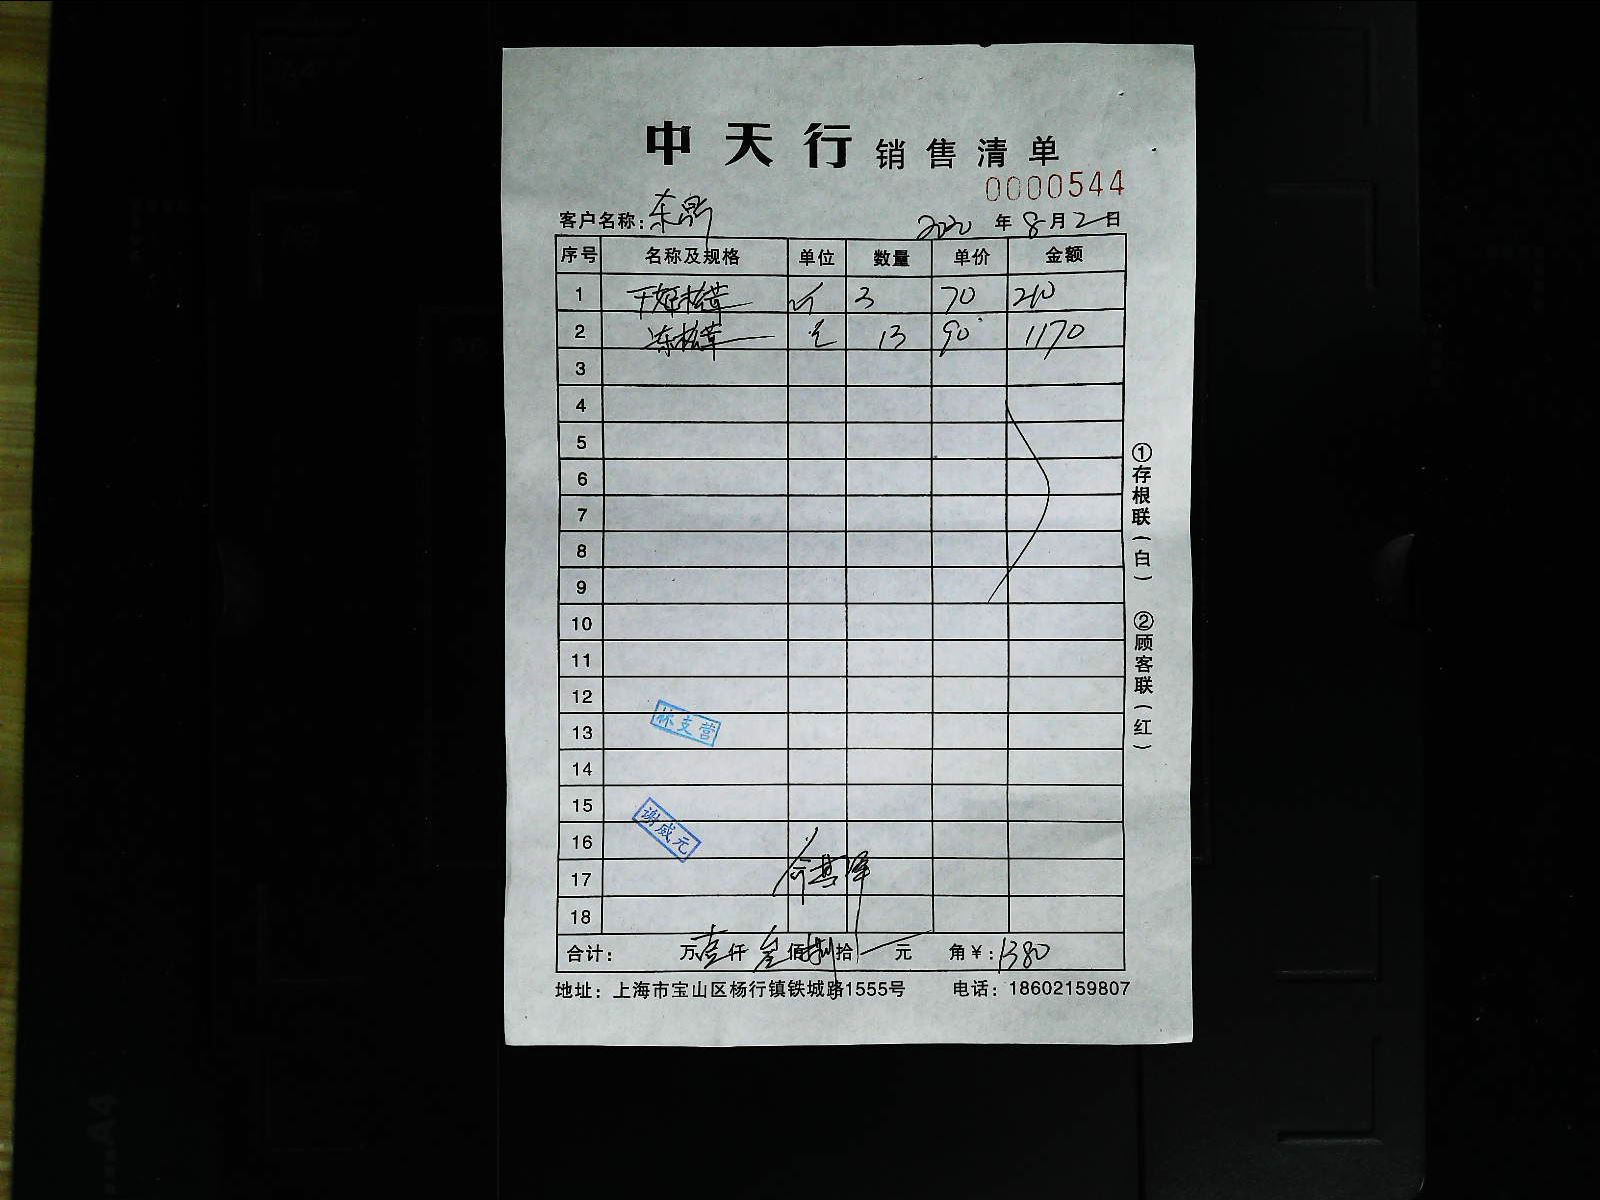 中天行 销售清单
0000544
客户名称: 东鼎 2020 年 8 月 2 日
序号 名称及规格 单位 数量 单价 金额
1 松茸 斤 3 70 210
2 冻松茸 13 90 1170
3
4
5
6
7
8
9
10
11
12
13
林支营
14
15
16
谢成元
17
18
合计: 万壹仟叁佰捌拾 元 角¥: 1380
地址: 上海市宝山区杨行镇铁城路1555号 电话: 18602159807
①存根联(白) ②顾客联(红)
A4